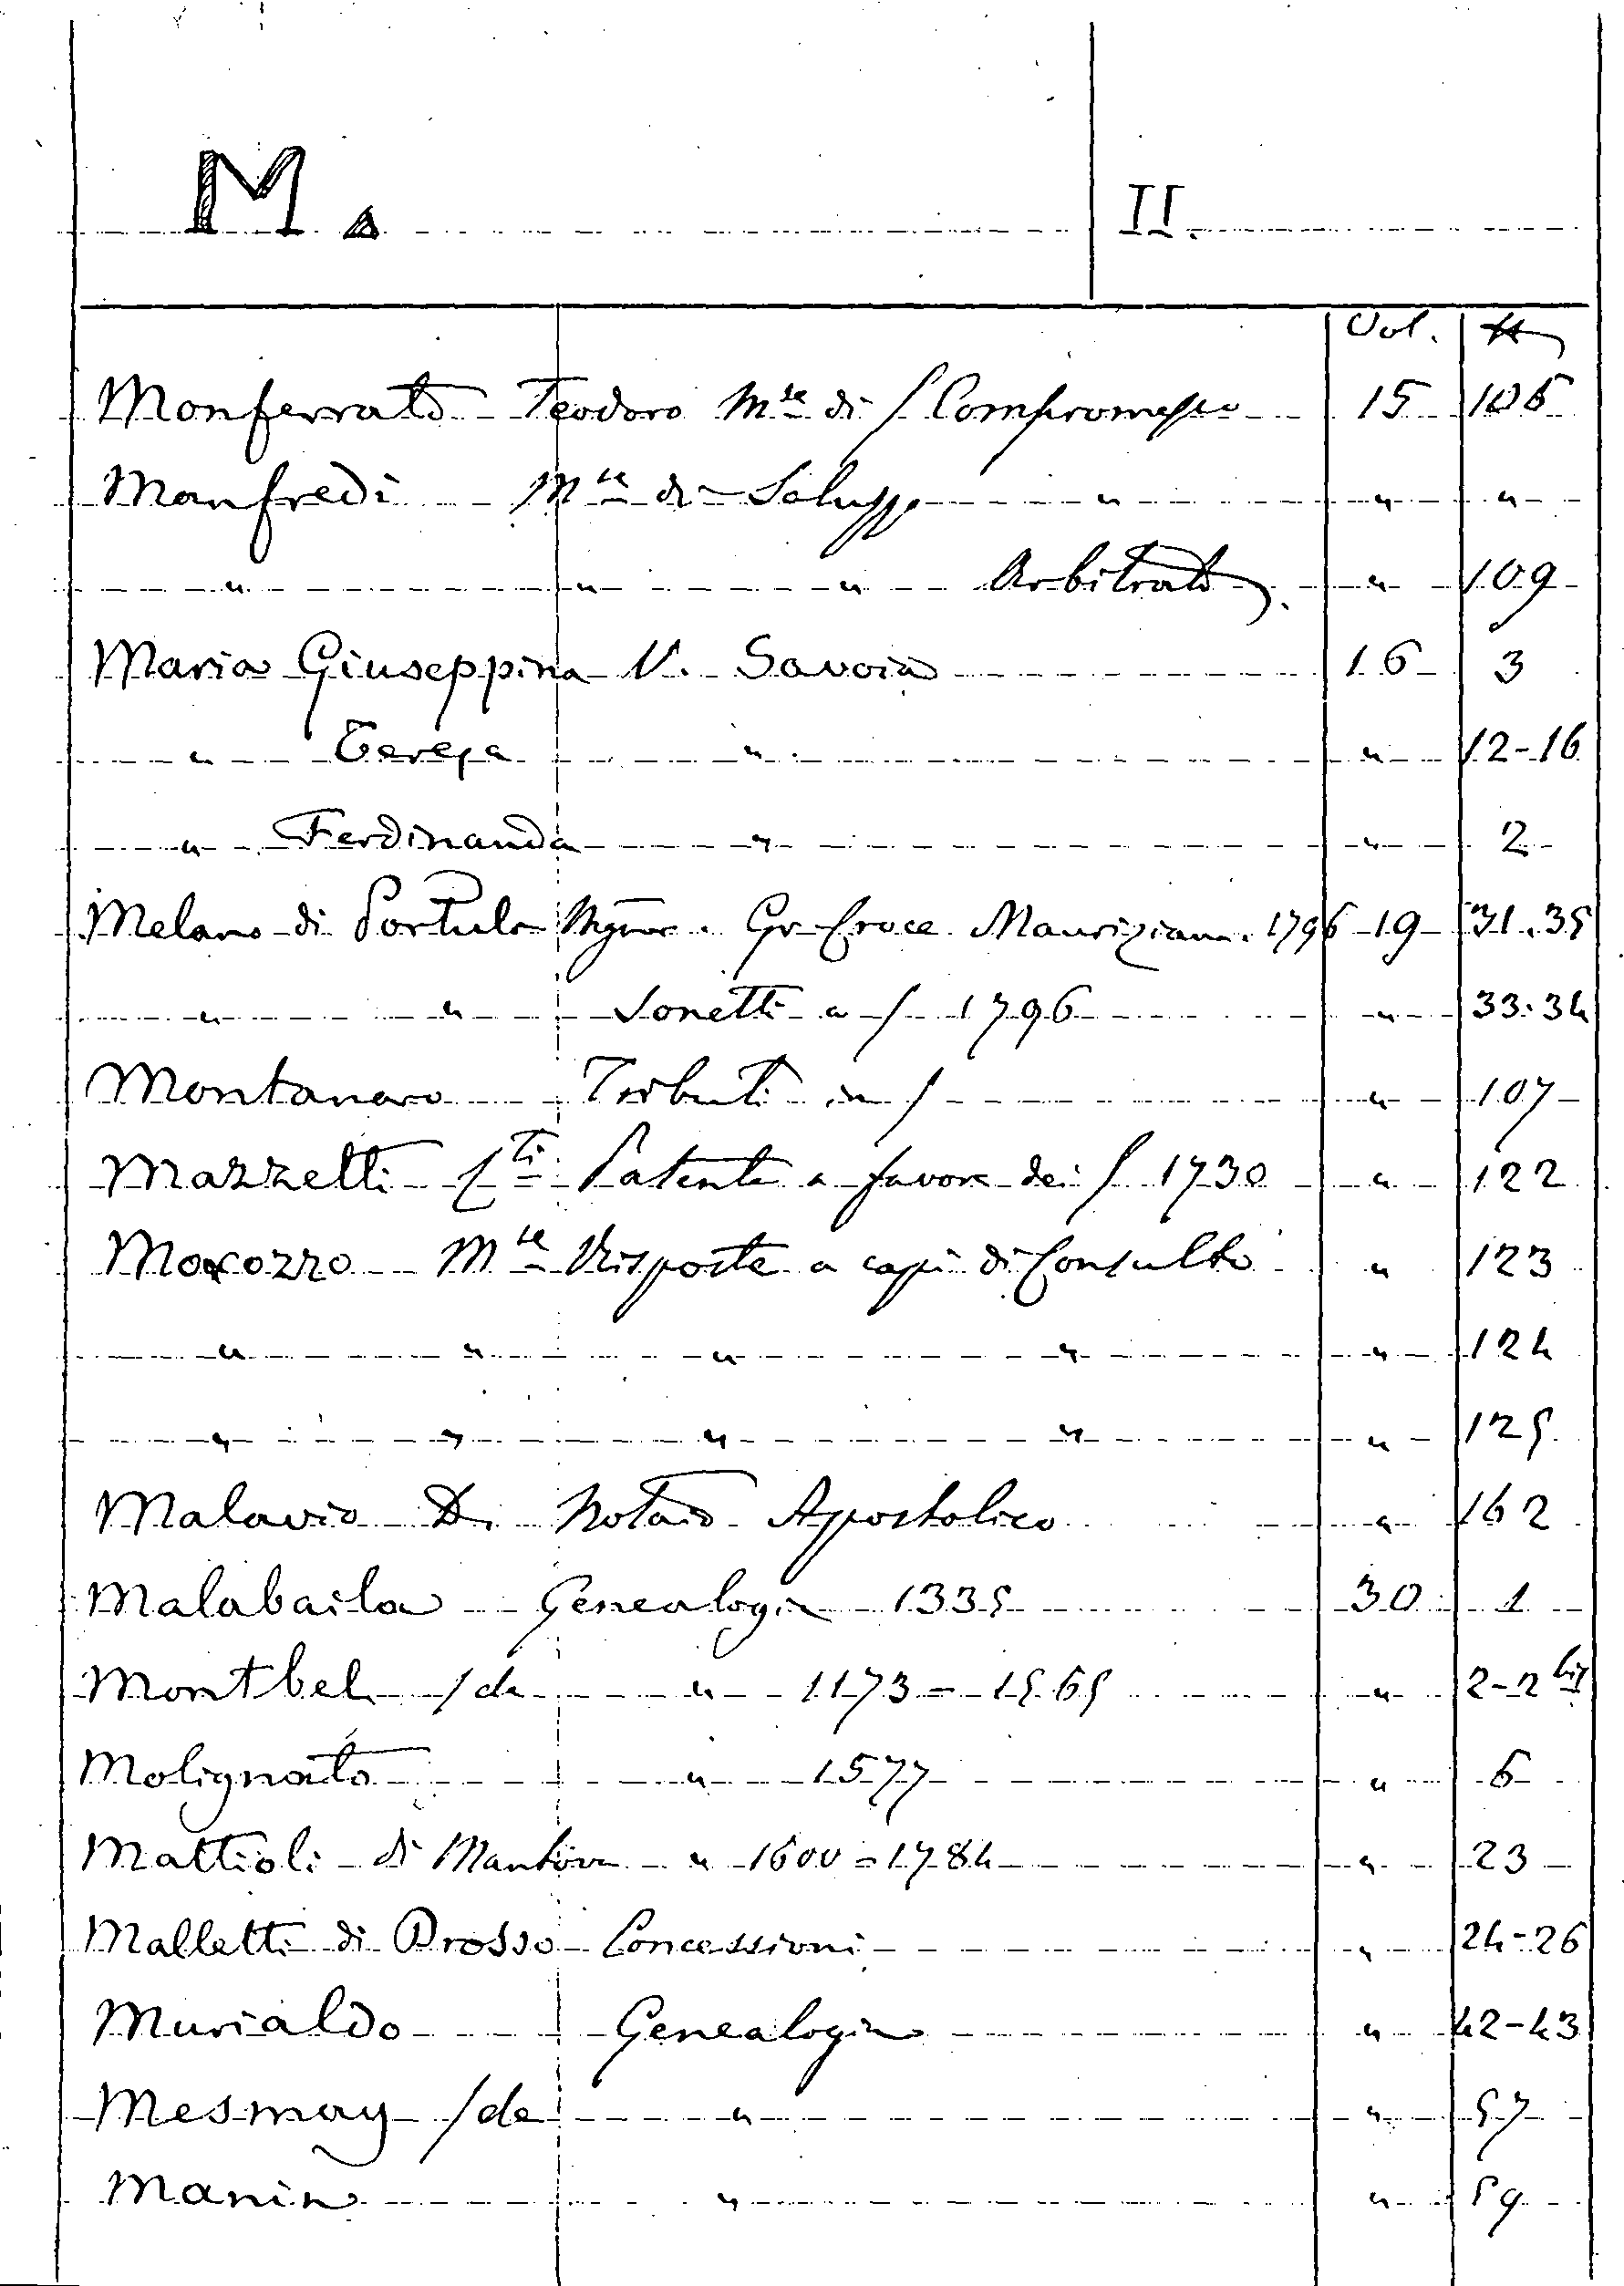 M. II.
Vol.
Monferrato Teodoro Mse di / Compromesso 15 106
Manfredi Mse di Saluzzo " " "
" " " Arbitrato " 109
Maria Giuseppina V. Savoia 16 3
" Teresa " " 12-16
" Ferdinanda " " 2
Melano di Portula Mgnor. Gr Croce Mauriziana. 1796 19 31.35
" " Sonetti a / 1796 " 33.34
Montanaro Tributi in / " 107
Mazzetti Cti Patente a favore dei / 1730 " 122
Morozzo Mse Risposte a capi di Consulto " 123
" " " " " 124
" " " " " 125
Malavio D. Notaio Apostolico " 162
Malabaila Genealogia 1335 30 1
Montbel /de " 1173-1565 " 2-2 bis
Molignato " 1577 " 6
Mattioli di Mantova " 1600-1784 " 23
Malletti di Brosso Concessioni " 24-26
Murialdo Genealogia " 42-43
Mesmay /de " " 57
Manin " " 59